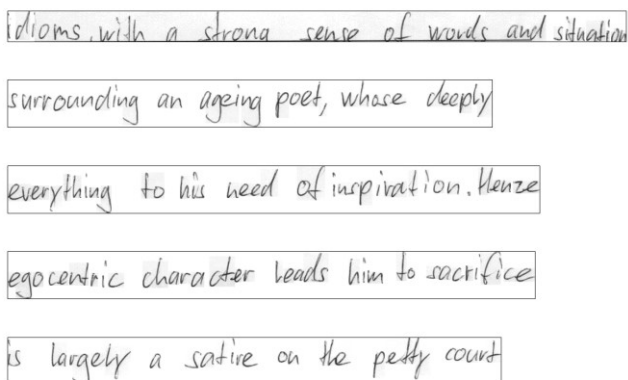 idioms, with a strong sense of words and situation
surrounding an ageing poet, whose deeply
everything to his need of inspiration. Henze
egocentric character leads him to sacrifice
is largely a satire on the petty court